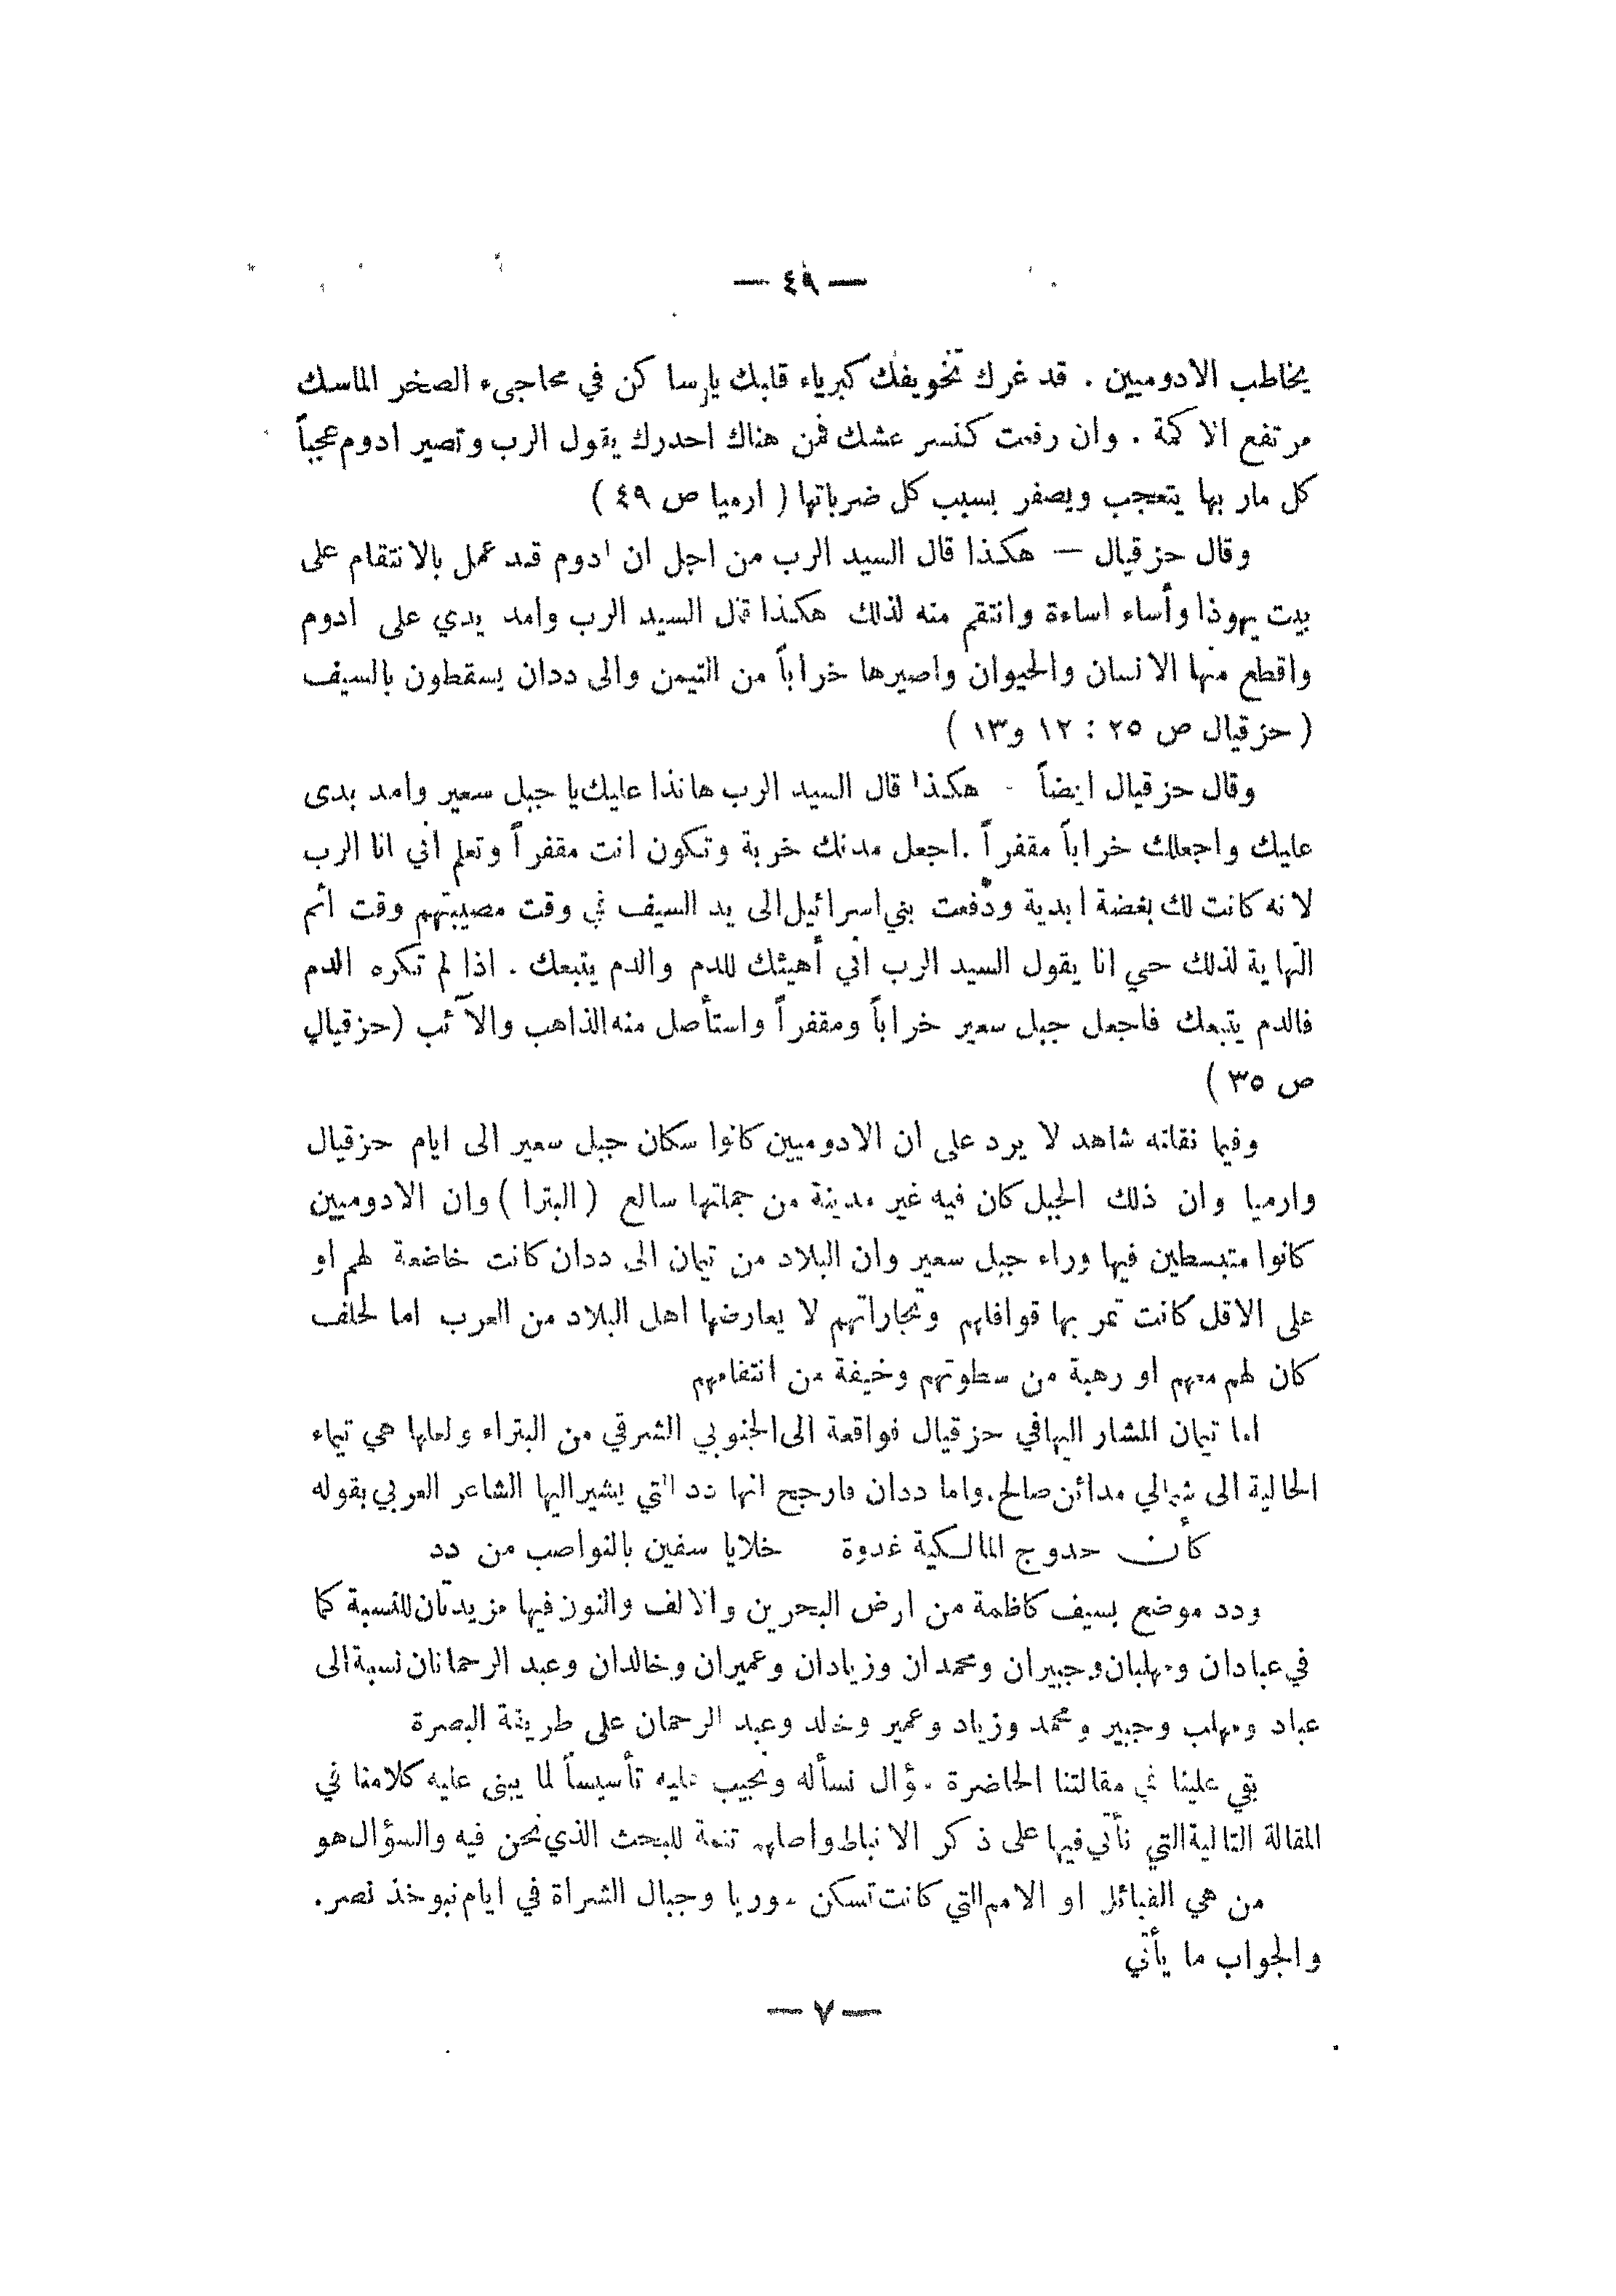 — ٤٩ —
يخاطب الادوميين . قد غرك تخويفك كبرياء قلبك يا ساكن في محاجىء الصخر الماسك
مرتفع الاكمة . وان رفعت كنسر عشك فمن هناك احدرك يقول الرب وتصير ادوم عجباً
كل مار بها يتعجب ويصفر بسبب كل ضرباتها ( ارميا ص ٤٩ )
وقال حزقيال — هكذا قال السيد الرب من اجل ان ادوم قد عمل بالانتقام على
بيت يهوذا وأساء اساءة وانتقم منه لذلك هكذا قال السيد الرب وامد يدي على ادوم
واقطع منها الانسان والحيوان واصيرها خراباً من التيمن والى ددان يسقطون بالسيف
( حزقيال ص ٢٥ : ١٢ و١٣ )
وقال حزقيال ايضاً - هكذا قال السيد الرب هانذا عليك يا جبل سعير وامد يدى
عليك واجعلك خراباً مقفراً . اجعل مدنك خربة وتكون انت مقفراً وتعلم اني انا الرب
لانه كانت لك بغضة ابدية ودفعت بني اسرائيل الى يد السيف في وقت مصيبتهم وقت اثم
النهاية لذلك حي انا يقول السيد الرب اني أهيئك للدم والدم يتبعك . اذا لم تكره الدم
فالدم يتبعك فاجعل جبل سعير خراباً ومقفراً واستأصل منه الذاهب والآئب ( حزقيال
ص ٣٥ )
وفيما نقلته شاهد لا يرد على ان الادوميين كانوا سكان جبل سعير الى ايام حزقيال
وارميا وان ذلك الجبل كان فيه غير مدينة من جملتها سالع ( البترا ) وان الادوميين
كانوا متبسطين فيها وراء جبل سعير وان البلاد من تيمان الى ددان كانت خاضعة لهم او
على الاقل كانت تمر بها قوافلهم وتجاراتهم لا يعارضها اهل البلاد من العرب اما لحلف
كان لهم معهم او رهبة من سطوتهم وخيفة من انتقامهم
اما تيمان المشار اليها في حزقيال فواقعة الى الجنوبي الشرقي من البتراء ولعلها هي تيماء
الحالية الى شمالي مدائن صالح . واما ددان فارجح انها دد التي يشير اليها الشاعر العربي بقوله
كأن حدوج المالكية غدوة خلايا سفين بالنواصب من دد
ودد موضع بسيف كاظمة من ارض البحرين والالف والنون فيها مزيدتان للنسبة كما
في عبادان ومهلبان وجبيران ومحمدان وزيادان وعميران وخالدان وعبد الرحمانان نسبة الى
عباد ومهلب وجبير ومحمد وزياد وعمير وخالد وعبد الرحمان على طريقة البصرة
بقي علينا في مقالتنا الحاضرة سؤال نسأله ونجيب عليه تأسيساً لما يبنى عليه كلامنا في
المقالة التالية التي نأتي فيها على ذكر الانباط واصلهم تتمة للبحث الذي نحن فيه والسؤال هو
من هي القبائل او الامم التي كانت تسكن سوريا وجبال الشراة في ايام نبوخذ نصر .
والجواب ما يأتي
— ٧ —